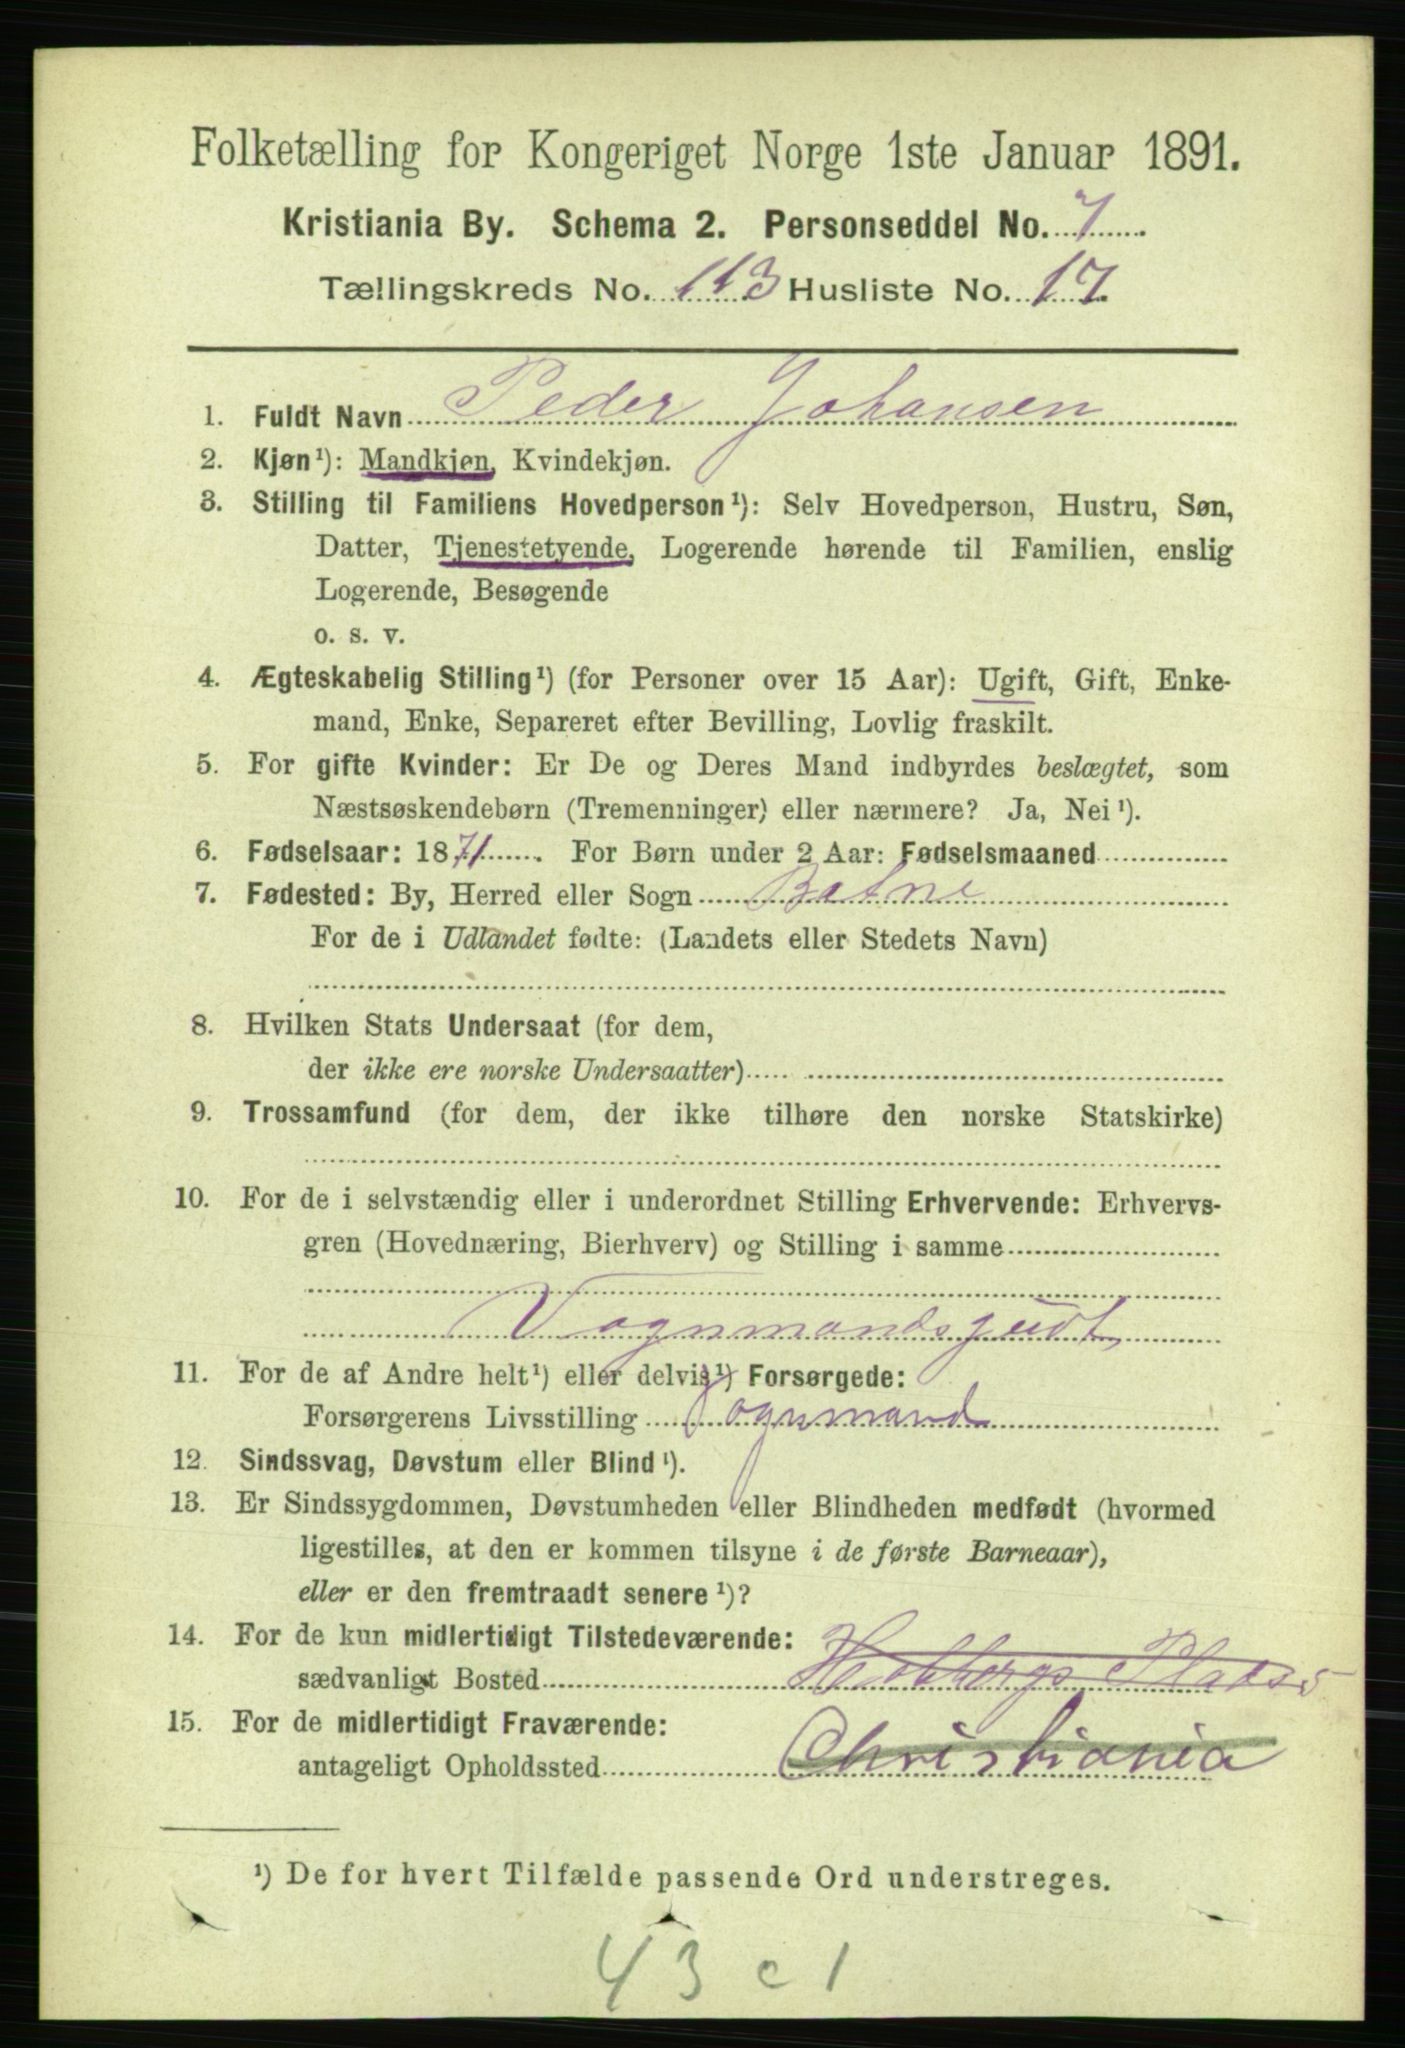 Folketælling for Kongeriget Norge 1ste Januar 1891.
Kristiania By. Schema 2. Personseddel No. 7
Tællingskreds No. 113 Husliste No. 17.
1. Fuldt Navn Peder Johansen
2. Kjøn¹): Mandkjøn, Kvindekjøn.
3. Stilling til Familiens Hovedperson¹): Selv Hovedperson, Hustru, Søn,
Datter, Tjenestetyende, Logerende hørende til Familien, enslig
Logerende, Besøgende
o. s. v.
4. Ægteskabelig Stilling¹) (for Personer over 15 Aar): Ugift, Gift, Enke-
mand, Enke, Separeret efter Bevilling, Lovlig fraskilt.
5. For gifte Kvinder: Er De og Deres Mand indbyrdes beslægtet, som
Næstsøskendebørn (Tremenninger) eller nærmere? Ja, Nei¹).
6. Fødselsaar: 1871. For Børn under 2 Aar: Fødselsmaaned
7. Fødested: By, Herred eller Sogn Botne
For de i Udlandet fødte: (Landets eller Stedets Navn)
8. Hvilken Stats Undersaat (for dem,
der ikke ere norske Undersaatter)
9. Trossamfund (for dem, der ikke tilhøre den norske Statskirke)
10. For de i selvstændig eller i underordnet Stilling Erhvervende: Erhvervs-
gren (Hovednæring, Bierhverv) og Stilling i samme
Vognmandsgudt
11. For de af Andre helt¹) eller delvis¹) Forsørgede:
Forsørgerens Livsstilling Vognmand
12. Sindssvag, Døvstum eller Blind¹).
13. Er Sindssygdommen, Døvstumheden eller Blindheden medfødt (hvormed
ligestilles, at den er kommen tilsyne i de første Barneaar),
eller er den fremtraadt senere¹)?
14. For de kun midlertidigt Tilstedeværende:
sædvanligt Bosted Plads 5
15. For de midlertidigt Fraværende:
antageligt Opholdssted Christiania
¹) De for hvert Tilfælde passende Ord understreges.
43 c 1